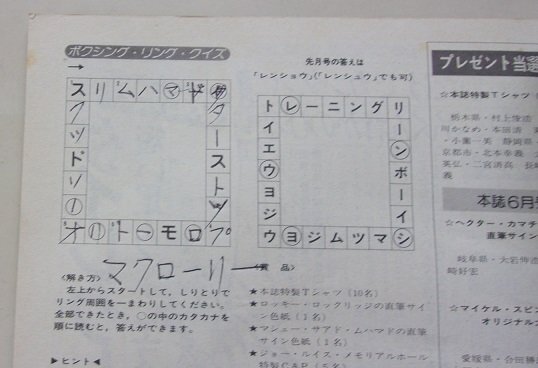 ボクシング・リング・クイズ
先月号の答えは
「レンショウ」(「レンシュウ」でも可)
プレゼント当選
☆本誌特製Tシャツ
栃木県・村上俊浩
川かなめ・本田清
・小薗一英 静岡県
京都市・北本孝義
英弘・二宮済高
義
スリムハマド
トレーニングリ
イエウヨジウ
ーンボーイシ
ヨジムツマ
オリトーモロプ
マクローリー
〈解き方〉
左上からスタートして,しりとりで
リング周囲を一まわりしてください。
全部できたとき,○の中のカタカナを
順に読むと,答えができます。
▶ヒント◀
〈賞 品〉
★本誌特製Tシャツ(10名)
★ロッキー・ロックリッジの直筆サイ
ン色紙(1名)
★マシュー・サアド・ムハマドの直筆
サイン色紙(1名)
★ジョー・ルイス・メモリアルホール
特製CAP(5名)
本誌6月号
☆ヘクター・カマチ
直筆サイン
岐阜県・大岩伸
崎好宏
☆マイケル・スピン
オリジナル
愛媛県・合田勝